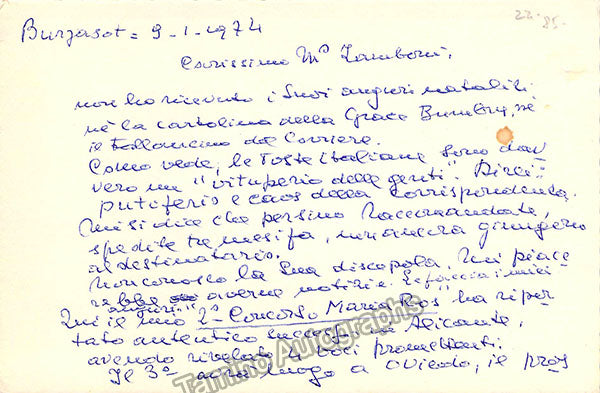 22-85-
Burjasot = 9-1-1974
Carissimo Mº Zamboni,
non ho ricevuto i Suoi auguri natalizi
nè la cartolina della Grace Bumbry, nè
il Falloncino del Corriere.
Como vede, le Poste italiane sono dav
vero un "vituperio delle genti". Direi:
putiferio e caos della corrispondenza.
Mi si dice che persino raccomandate,
spedite tre mesi fa, non ancora giungono
al destinatario.
Non conosco la Sua discepola. Mi piace
rebbe averne notizie. Le faccia i miei
auguri."
Qui il mio 2º Concorso Maria Ros" ha ripor
tato autentico successo a Alicante,
avendo rivelato 4 voci promettenti.
Il 3º avrà luogo a Oviedo, il pros
Tamino Autographs